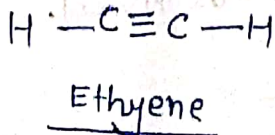 H—C≡C—H
Ethyene